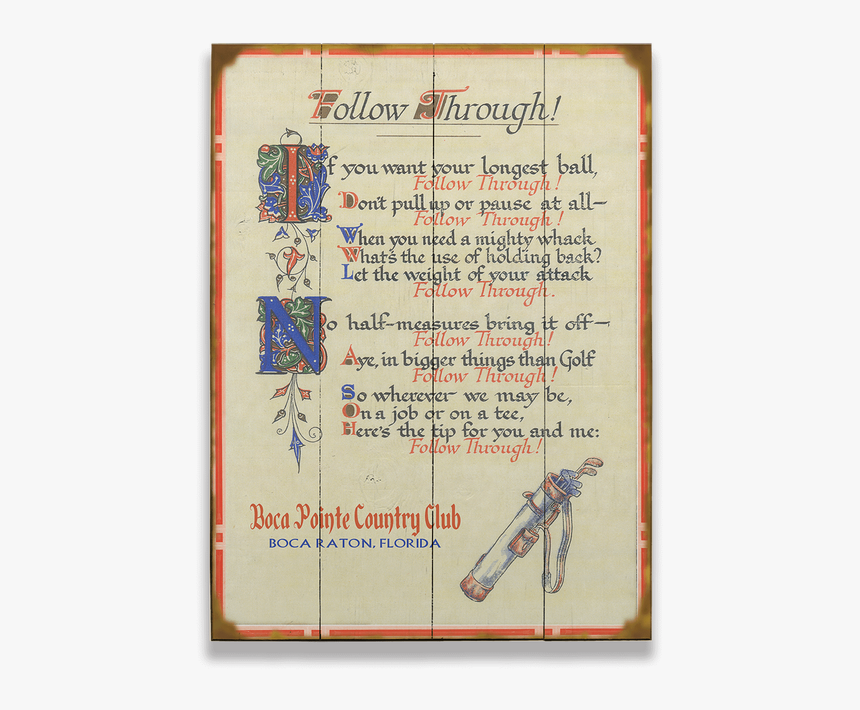 Follow Through!
If you want your longest ball,
Follow Through!
Don't pull up or pause at all—
Follow Through!
When you need a mighty whack
What's the use of holding back?
Let the weight of your attack
Follow Through.
No half-measures bring it off—
Follow Through!
Aye, in bigger things than Golf
Follow Through!
So wherever we may be,
On a job or on a tee,
Here's the tip for you and me:
Follow Through!
Boca Pointe Country Club
BOCA RATON, FLORIDA